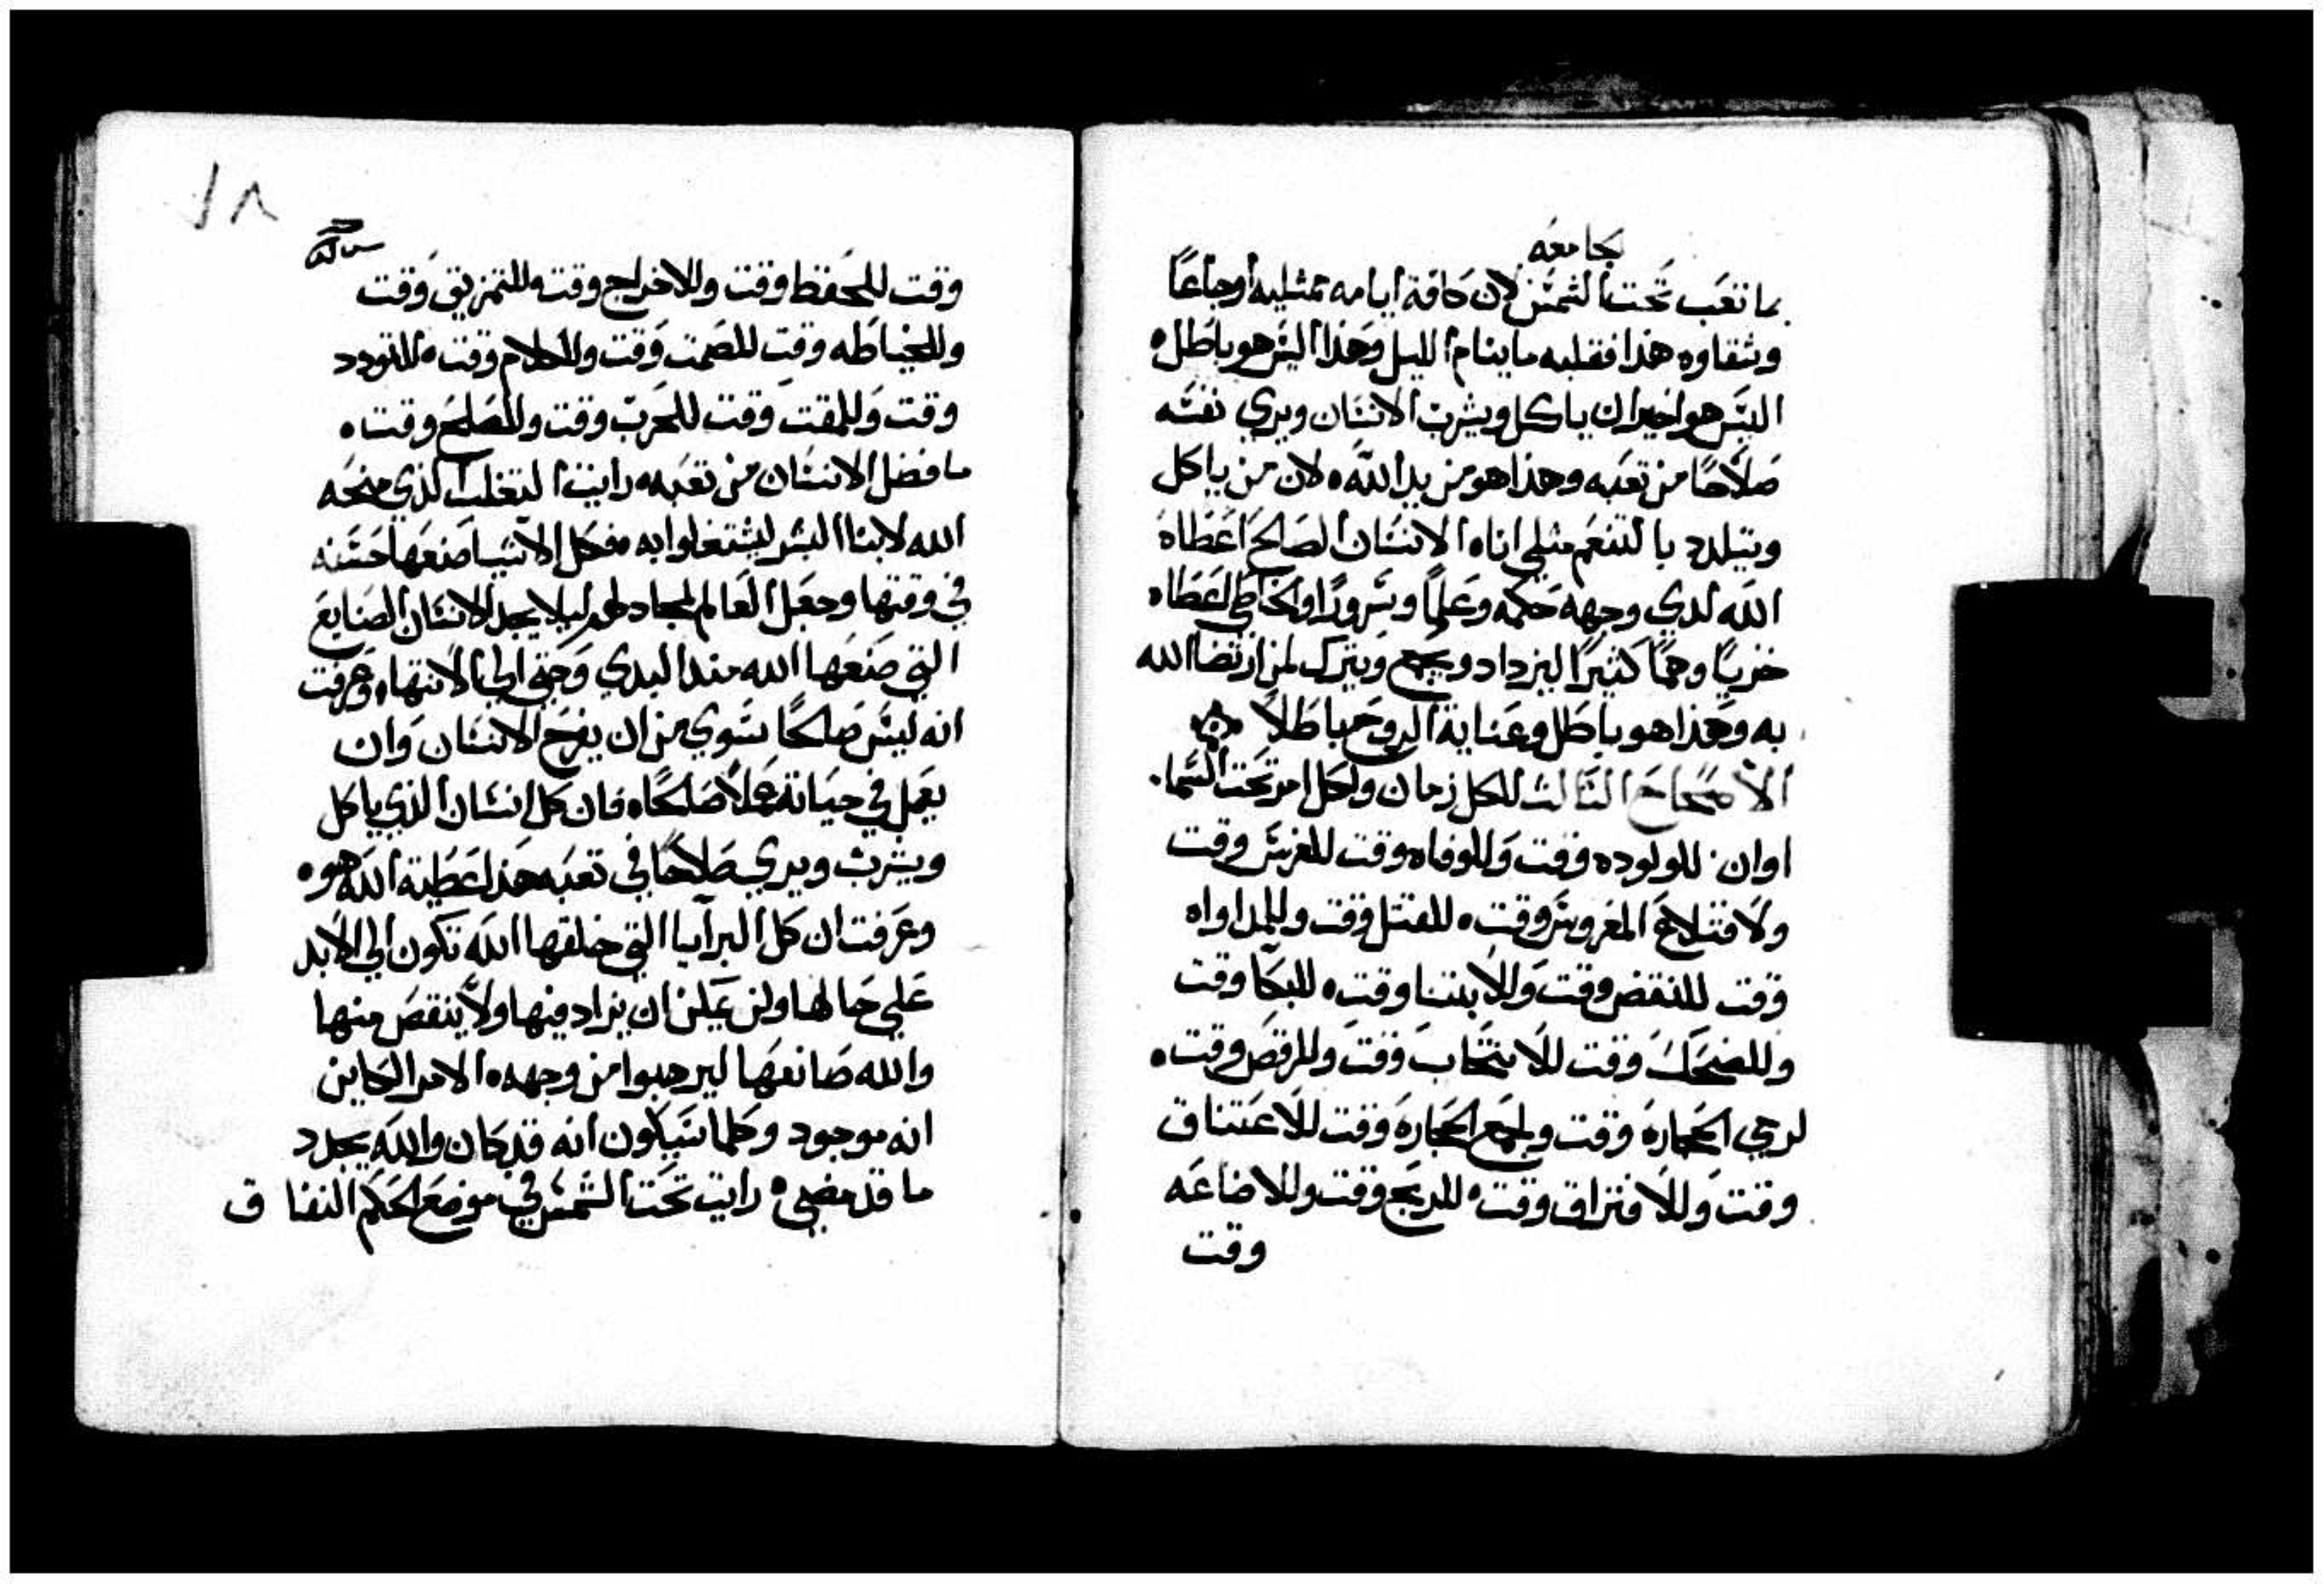 جامعه
بما تعَب تحت الشمسَ لان كافة ايامه ممتليه اوجاعًا
وشقاوه هذا فقلبه ما ينام الليل وهذا اليسَ هو باطله
اليسَ هو اخير ان ياكل ويشرب الانسَان ويري نفسَه
صَلاحًا من تعَبه وهذا هو من يد الله ه لان من ياكل
ويتلدد بالتنعَم مثلي اناه الانسَان الصَالح اعَطاه
الله لدي وجهه حَكمه وعَلمًا وسَرورًا والخاطي اعَطاه
خزيًا وهمًا كثيرًا ليزداد ويجمع ويترك لمن ارتضا الله
به وهذا هو باطل وعَناية الروح باطلاً
الاصحاح الثالث للكل زمان ولكل امر تحت السَما.
اوان للولوده وقت وللوفاه وقت للغرسَ وقت
ولاقتلاع المغروسَ وقت ه للقتل وقت وللمداواه
وقت للنقض وقت وللابتنا وقت ه للبكا وقت
وللضحَك وقت للانتحاب وقت وللرقص وقت ه
لرمي الحجاره وقت ولجمع الحجاره وقت للاعَتناق
وقت وللافتراق وقت ه للربح وقت وللاضاعَه
وقت
١٨
وقت للحَفظ وقت وللاخراج وقت وللتمزيق وقت
وللخياطَه وقت للصَمت وقت وللكلام وقت ه للتودد
وقت وللمقت وقت للحَرب وقت وللصَلحَ وقت ه
ما فضل الانسَان من تعَبه ه رايت التعَلب الذي منحَه
الله لابنا البشر ليشتغلوا به ه فكل الاشيا صَنعَها حَسَنه
في وقتها وجعَل العَالم لمجادلهم ليلا يجد الانسَان الصَنايع
التي صَنعَها الله مند البدي وَحَتي الي الانتهاه وعَرفت
انه ليسَ صَالحًا سَوي من ان يفرحَ الانسَان وَان
يعَمل في حَياته عَملاً صَالحًا ه فان كل انسَان الذي ياكل
ويشرب ويري صَلاحًا في تعَبه هذا عَطية الله هوه
وعَرفت ان كل البرايا التي خلقها الله تكون الي الابد
عَلي حَالها ولن يمكن ان يزاد فيها ولا ينقصَ منها
والله صَانعَها ليرهبوا من وجهه ه الامر الكاين
انه موجود وكلما سَيكون انه قد كان والله يجدد
ما قد مضي ه رايت تحت الشمسَ في موضعَ الحَكم النفاق